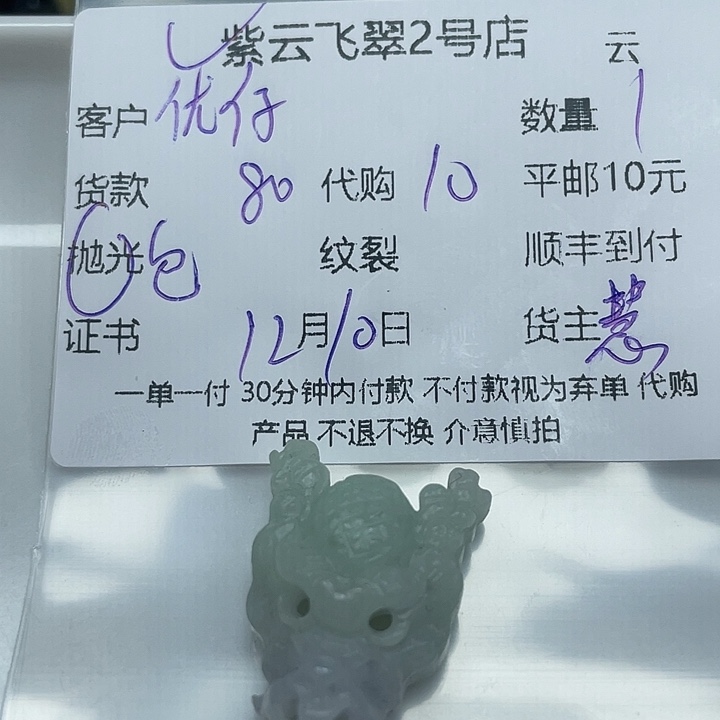 紫云飞翠2号店 云
客户 优仔 数量 1
货款 80 代购 10 平邮10元
抛光 包 纹裂 顺丰到付
证书 12月10日 货主 慧
一单一付 30分钟内付款 不付款视为弃单 代购
产品 不退不换 介意慎拍